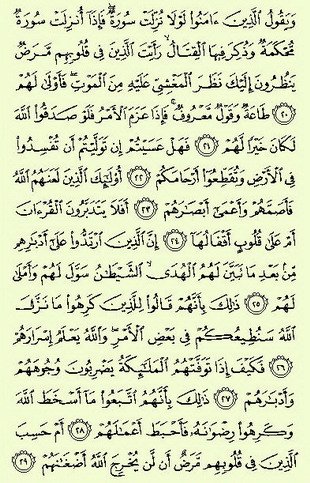 وَيَقُولُ الَّذِينَ ءَامَنُوا لَوْلَا نُزِّلَتْ سُورَةٌ ۖ فَإِذَا أُنزِلَتْ سُورَةٌ
مُّحْكَمَةٌ وَذُكِرَ فِيهَا الْقِتَالُ ۙ رَأَيْتَ الَّذِينَ فِي قُلُوبِهِم مَّرَضٌ
يَنظُرُونَ إِلَيْكَ نَظَرَ الْمَغْشِيِّ عَلَيْهِ مِنَ الْمَوْتِ ۖ فَأَوْلَىٰ لَهُمْ
﴿٢٠﴾ طَاعَةٌ وَقَوْلٌ مَّعْرُوفٌ ۚ فَإِذَا عَزَمَ الْأَمْرُ فَلَوْ صَدَقُوا اللَّهَ
لَكَانَ خَيْرًا لَّهُمْ ﴿٢١﴾ فَهَلْ عَسَيْتُمْ إِن تَوَلَّيْتُمْ أَن تُفْسِدُوا
فِي الْأَرْضِ وَتُقَطِّعُوا أَرْحَامَكُمْ ﴿٢٢﴾ أُولَٰئِكَ الَّذِينَ لَعَنَهُمُ اللَّهُ
فَأَصَمَّهُمْ وَأَعْمَىٰ أَبْصَارَهُمْ ﴿٢٣﴾ أَفَلَا يَتَدَبَّرُونَ الْقُرْءَانَ
أَمْ عَلَىٰ قُلُوبٍ أَقْفَالُهَا ﴿٢٤﴾ إِنَّ الَّذِينَ ارْتَدُّوا عَلَىٰ أَدْبَارِهِم
مِّن بَعْدِ مَا تَبَيَّنَ لَهُمُ الْهُدَى ۙ الشَّيْطَانُ سَوَّلَ لَهُمْ وَأَمْلَىٰ
لَهُمْ ﴿٢٥﴾ ذَٰلِكَ بِأَنَّهُمْ قَالُوا لِلَّذِينَ كَرِهُوا مَا نَزَّلَ
اللَّهُ سَنُطِيعُكُمْ فِي بَعْضِ الْأَمْرِ ۖ وَاللَّهُ يَعْلَمُ إِسْرَارَهُمْ
﴿٢٦﴾ فَكَيْفَ إِذَا تَوَفَّتْهُمُ الْمَلَائِكَةُ يَضْرِبُونَ وُجُوهَهُمْ
وَأَدْبَارَهُمْ ﴿٢٧﴾ ذَٰلِكَ بِأَنَّهُمُ اتَّبَعُوا مَا أَسْخَطَ اللَّهَ
وَكَرِهُوا رِضْوَانَهُ فَأَحْبَطَ أَعْمَالَهُمْ ﴿٢٨﴾ أَمْ حَسِبَ
الَّذِينَ فِي قُلُوبِهِم مَّرَضٌ أَن لَّن يُخْرِجَ اللَّهُ أَضْغَانَهُمْ ﴿٢٩﴾